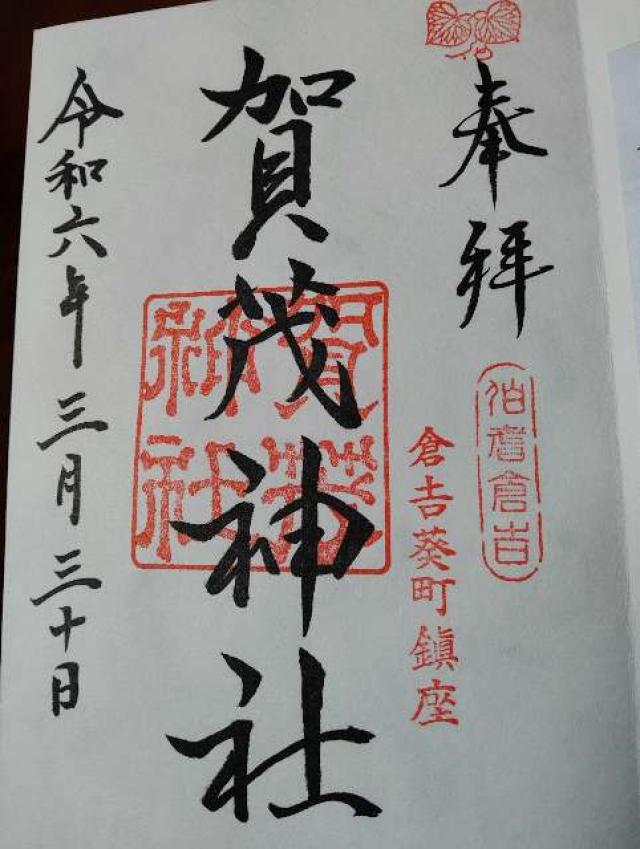 奉拝
伯耆倉吉
倉吉葵町鎮座
賀茂神社
賀茂神社
令和六年三月三十日